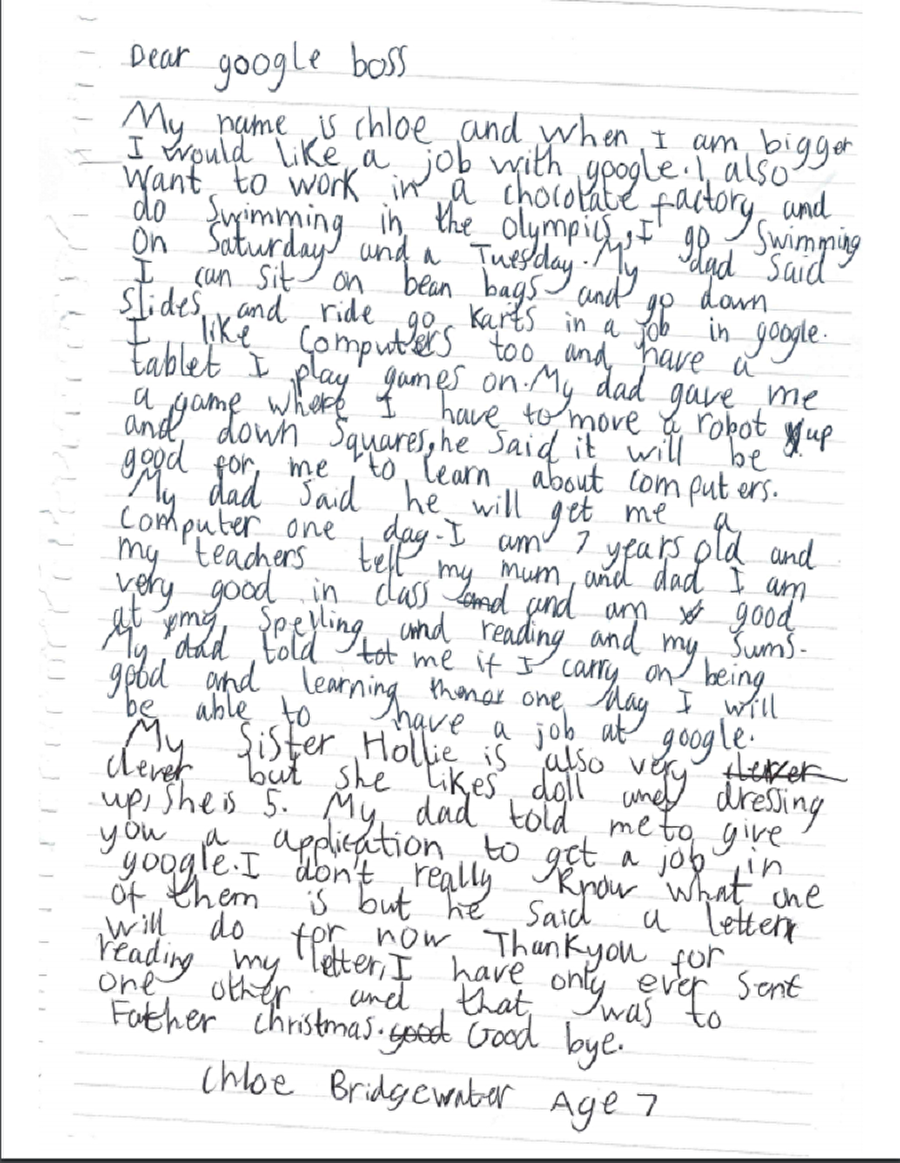 Dear google boss
My name is chloe and when I am bigger
I would like a job with google. I also
want to work in a chocolate factory and
do swimming in the olympics, I go Swimming
on Saturday and a Tuesday. My dad said
I can sit on bean bags and go down
slides and ride go karts in a job in google.
I like computers too and have a
tablet I play games on. My dad gave me
a game where I have to move a robot up
and down squares, he said it will be
good for me to learn about computers.
My dad said he will get me a
computer one day. I am 7 years old and
my teachers tell my mum and dad I am
very good in class and and am good
at my Spelling and reading and my sums.
My dad told tot me if I carry on being
good and learning one day I will
be able to have a job at google.
My Sister Hollie is also very clever
clever but she likes doll and dressing
up, she is 5. My dad told me to give
you a application to get a job in
google. I don't really know what one
of them is but he said a letter
will do for now Thankyou for
reading my letter, I have only ever sent
one other and that was to
Father christmas. good Good bye.
Chloe Bridgewater Age 7